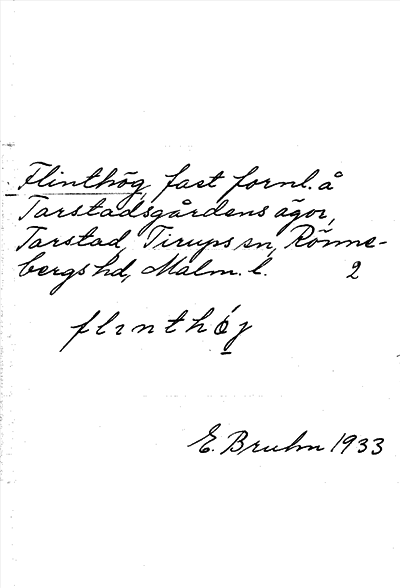 Flinthög, fast fornl. å
Tarstadsgårdens ägor,
Tarstad, Tirups sn, Rönne-
bergs hd, Malm. l. 2
flınthǿj
E. Bruhn 1933